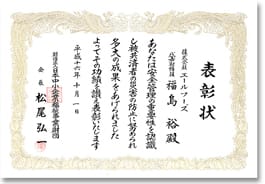 表彰状
株式会社エールフーズ
代表取締役
福島 裕殿
あなたは安全管理の重要性を認識
し被共済者の災害の防止に努められ
多大の成果をあげられました
よってその功績を讃え表彰いたします
平成十六年十月一日
財団法人日本中小企業福祉事業財団
会長 松尾弘一